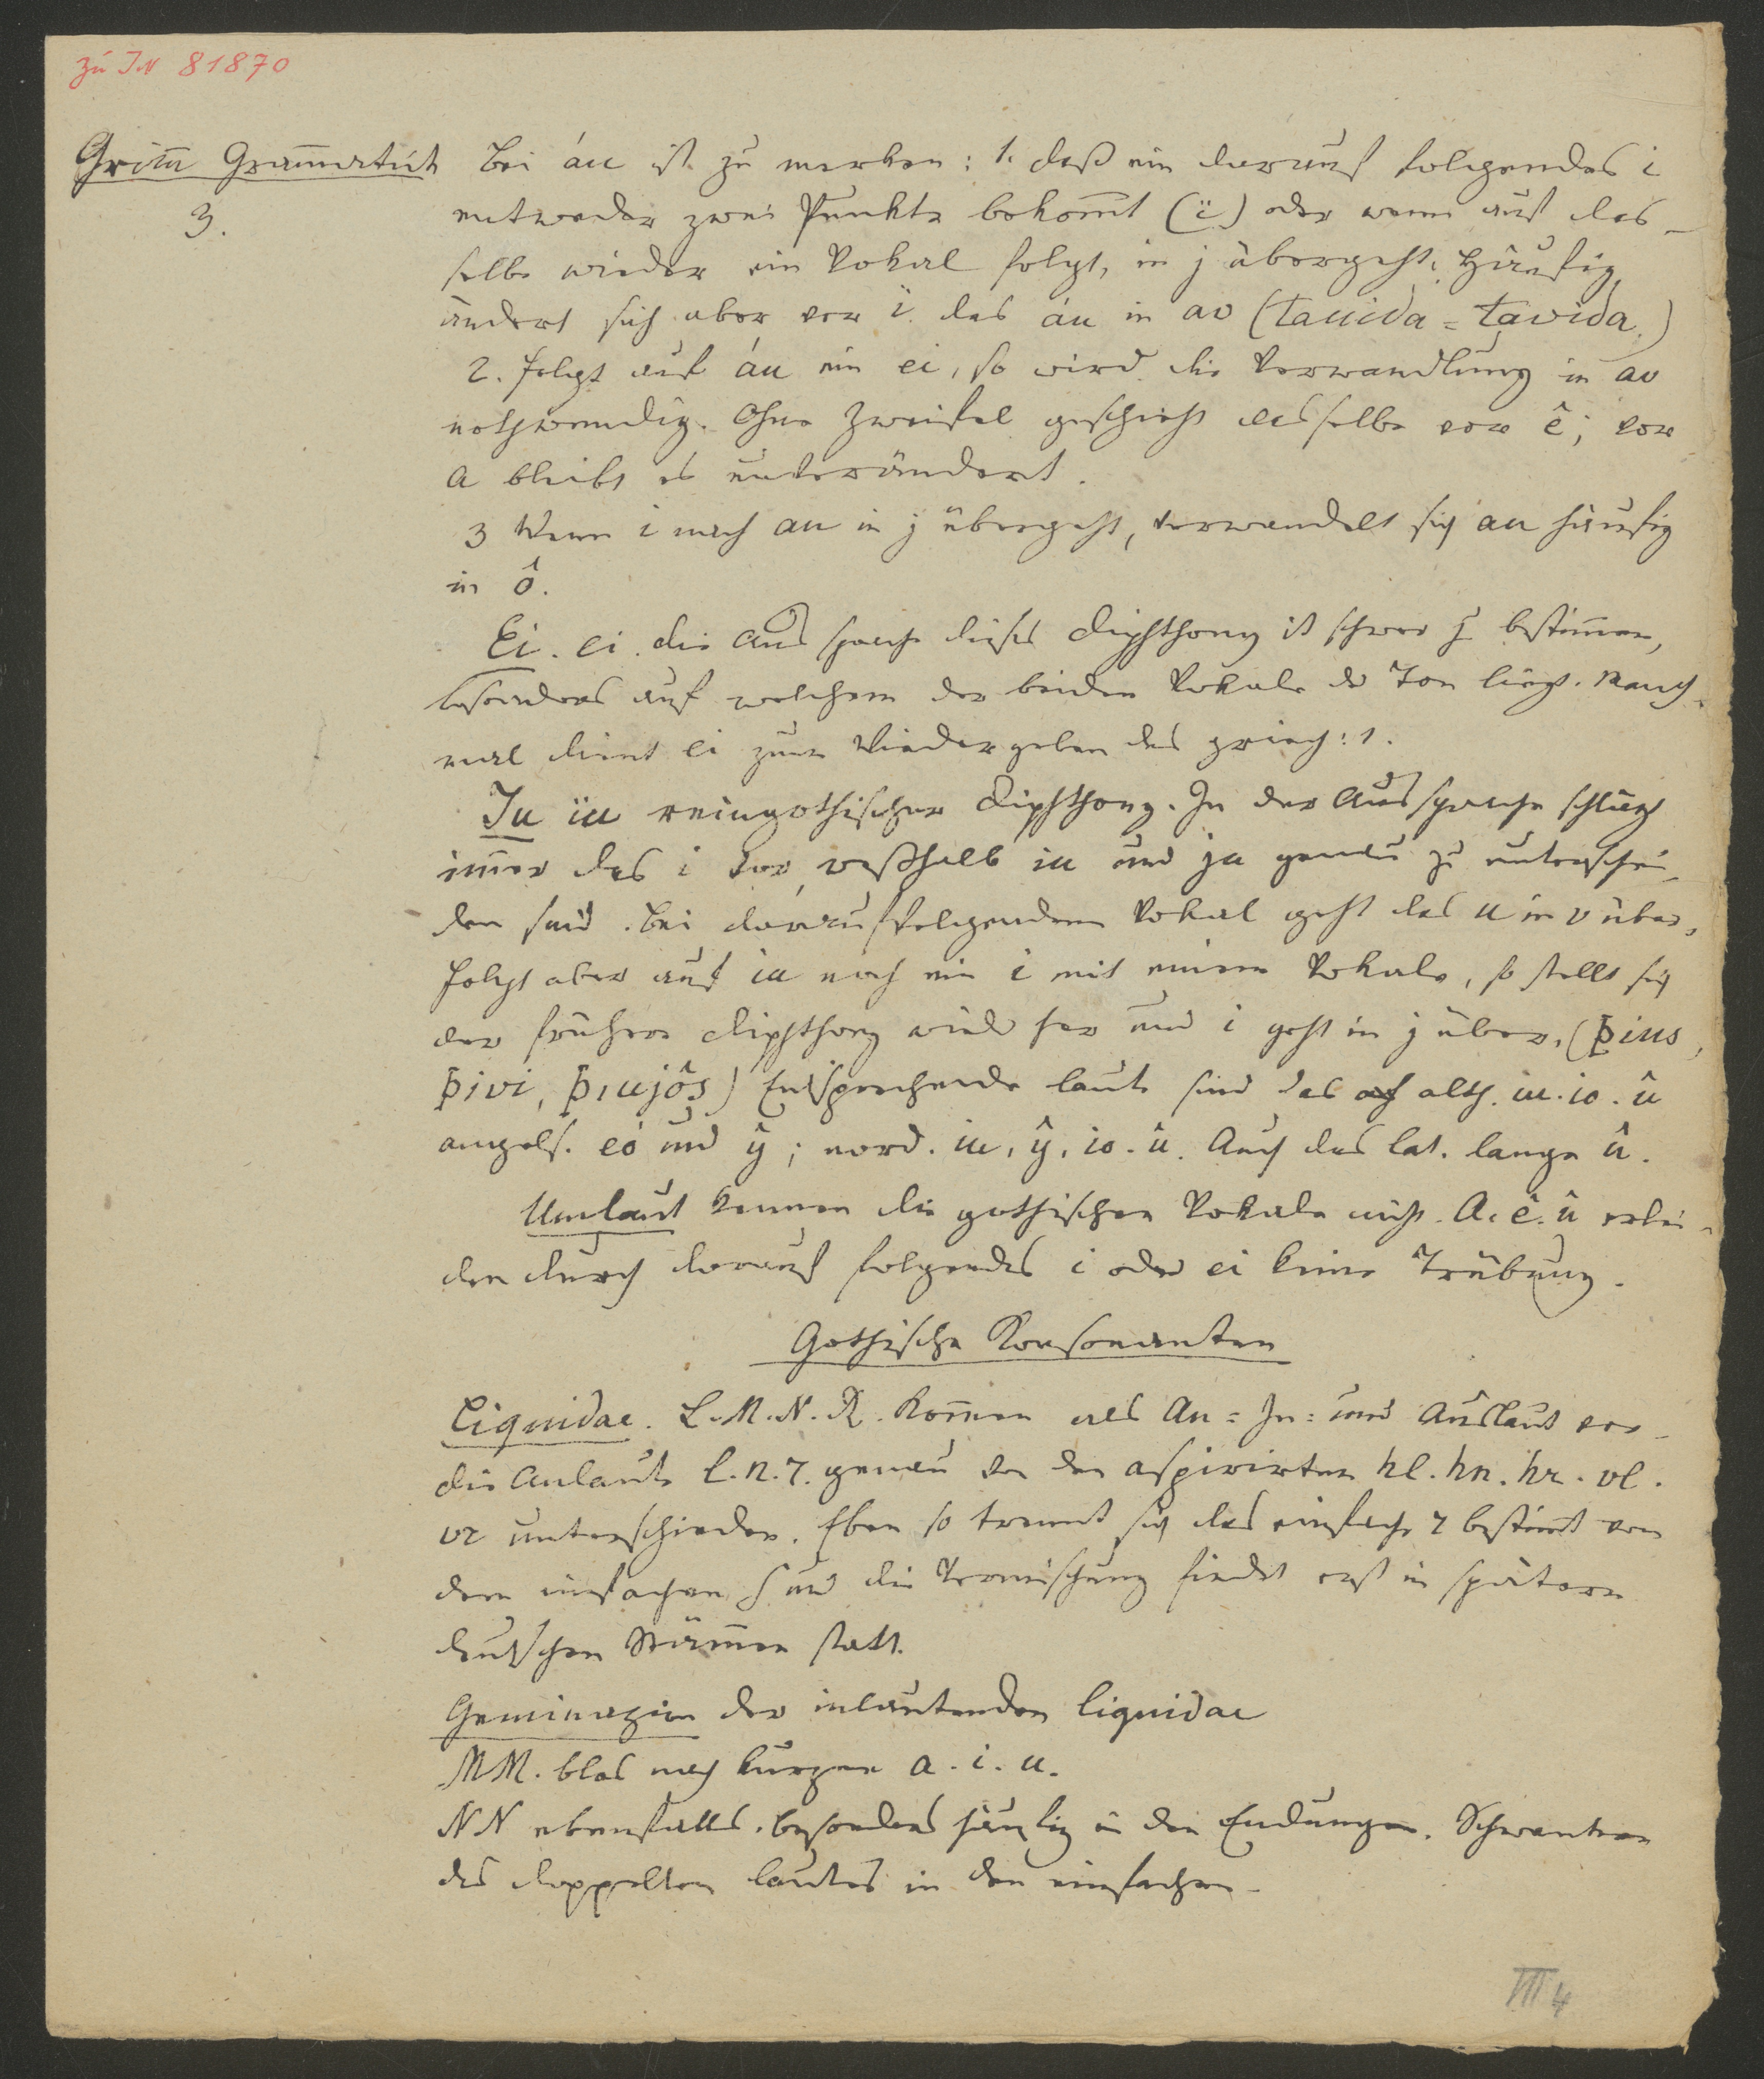 Zu IN 81870
Grim̅ Gram̅atik
3.
Bei áu ist zu merken: 1. daß ein darauf folgendes i
entweder zwei Punkte bekom̅t (ï) oder wenn auf das-
selbe wieder ein Vokal folgt, in j übergeht. Häufig
ändert sich aber vor ï das áu in av (tauida = tavida.)
2. folgt auf áu ein ei, so wird die Verwandlung in av
nothwendig. Ohne Zweifel geschieht dasselbe vor ê; vor
a bleibt es unverändert.
3 Wenn i nach au in j übergeht, verwandelt sich au häufig
in ô.
Ei. ei. die Aussprache dieses Diphthong ist schwer zu bestim̅en,
besonders auf welchem der beiden Vokale der Ton liegt. Manch-
mal dient ei zum Wiedergeben des griech: ι.
Iu iu reingothischer Diphthong. In der Aussprache schlägt
im̅er das i vor, weßhalb iu und ju genau zu unterschei-
den sind. Bei darauffolgendem Vokal geht das u in v über,
folgt aber auf iu noch ein i mit einem Vokale, so stellt sich
der frühere Diphthong wieder her und i geht in j über. (þius,
þivi, þiujôs) Entsprechende Laute sind das alth. iu. io. û
angels. eó und ŷ; nord. iu, ŷ, io. û. Auch das lat. lange û.
Umlaut kennen die gothischen Vokale nicht. A. ê. û erlei-
den durch darauf folgendes i oder ei keine Trübung.
Gothische Konsonanten
Liquidae. L. M. N. R. kom̅en als An= In= und Auslaut vor
die Anlaute l. n. r. genau von den aspirirten hl. hn. hr. vl.
vr unterschieden. Eben so trennt sich das einfache r bestim̅t von
dem einfachen s und die Vermischung findet erst in spätern
deutschen Stäm̅en statt.
Geminazion der inlautenden liquidae
MM. blos nach kurzem a. i. u.
NN ebenfalls. besonders häufig in den Endungen. Schwanken
des doppelten Lautes in den einfachen.
III 4